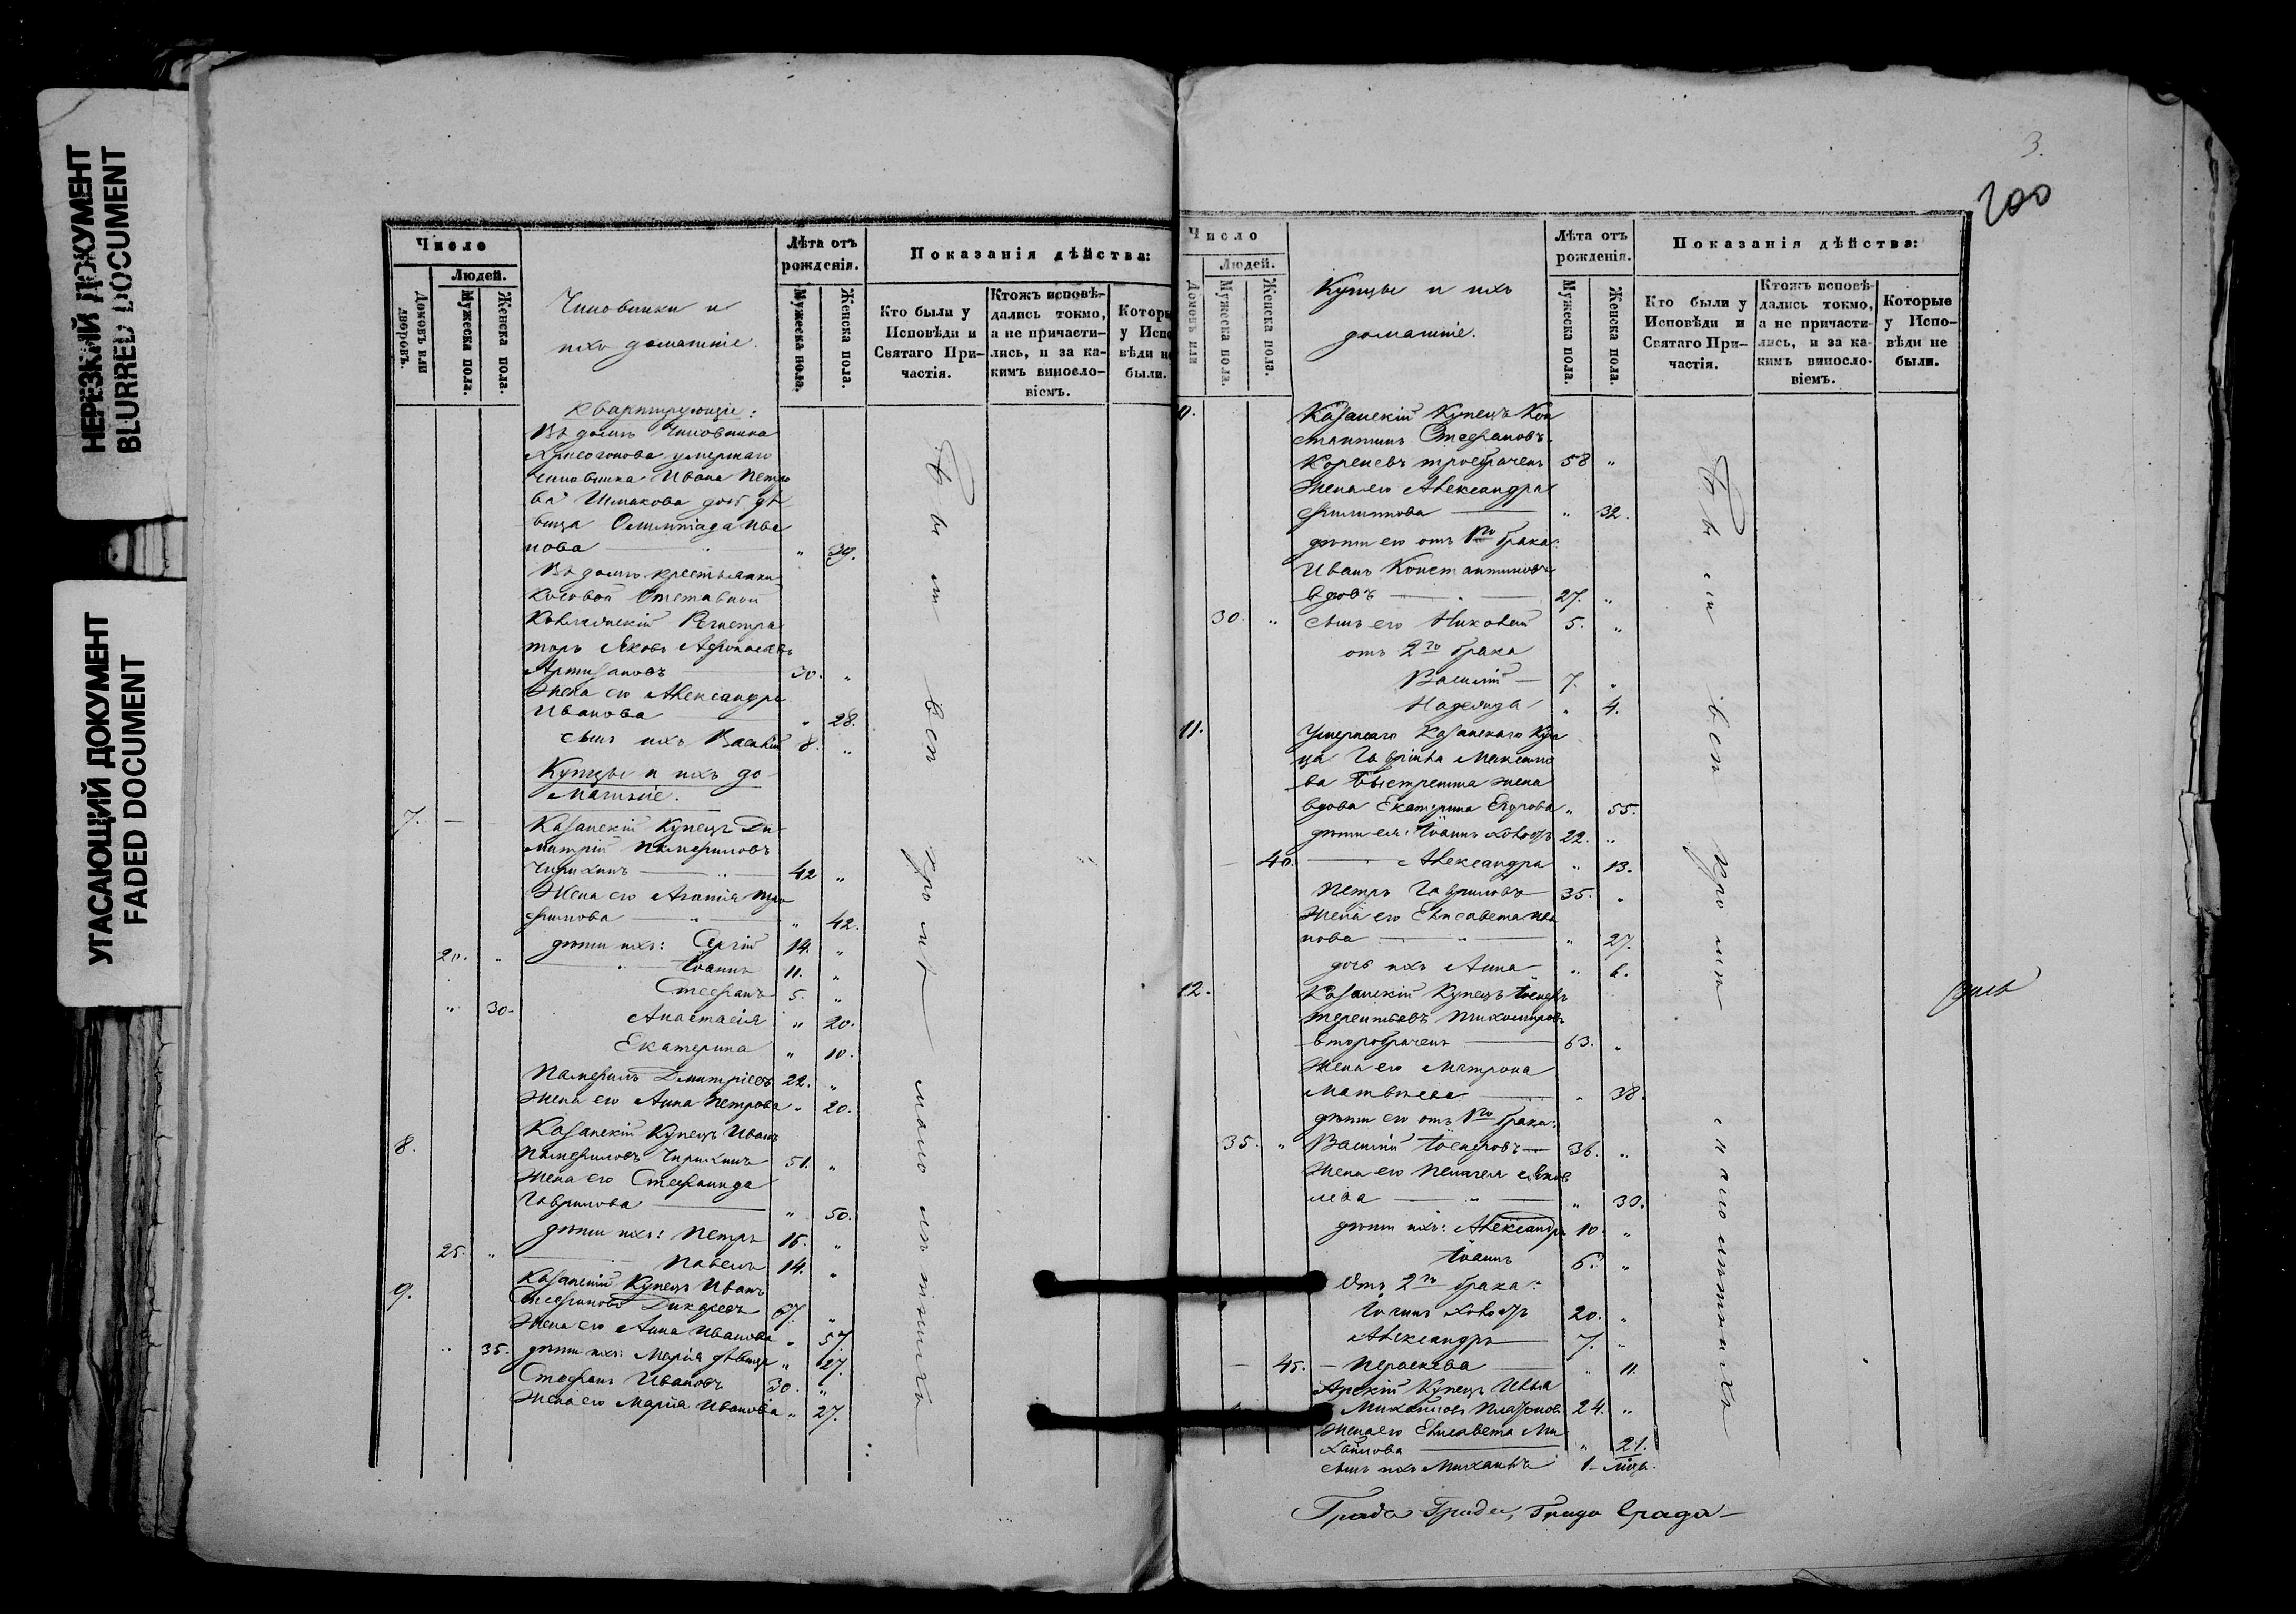 НЕРЕЗКИЙ ДОКУМЕНТ
BLURRED DOCUMENT
УГАСАЮЩИЙ ДОКУМЕНТ
FADED DOCUMENT
Число
Людей.
Домовъ или дворовъ.
Мужеска пола.
Женска пола.
Чиновники и
ихъ домашніе.
Лѣта отъ
рожденія.
Мужеска пола.
Женска пола.
Показанія дѣйства:
Кто были у
Исповѣди и
Святаго При-
частія.
Ктожъ исповѣ-
дались токмо,
а не причасти-
лись, и за ка-
кимъ виносло-
віемъ.
Которы
у Испо
вѣди не
были.
Квартирующіе:
Въ домѣ Чиновника
Хрисогонова умершаго
Чиновника Ивана Петро
ва Шмакова дочь дѣ-
вица Олимпіада Ива
нова " 39.
Въ домѣ крестьянки
Косовой Отставной
Коллежскій Регистра
торъ Яковъ
30. "
Жена его Александра
Иванова " 28.
сынъ ихъ Василій 8. "
Купцы и ихъ до-
машніе.
7. Казанскій Купецъ Ди-
митрій Памфиловъ
Чирихинъ 42 "
Жена его Агапія Тро
фимова " 42.
20. " дѣти ихъ: Сергій 14. "
Іоаннъ 11. "
Стефанъ 5. "
" 30. Анастасія " 20.
Екатерина " 10.
Памфилъ Димитріевъ 22. "
Жена его Анна Петрова " 20.
8. Казанскій Купецъ Иванъ
Памфиловъ Чирихинъ 51. "
Жена его Стефанида
Гаврилова " 50.
дѣти ихъ: Петръ 15. "
25. " Павелъ 14. "
9. Казанскій Купецъ Иванъ
Стефановъ 67. "
Жена его Анна Иванова " 57.
" 35. дѣти ихъ: Марія дѣвица " 27.
Стефанъ Ивановъ 30. "
Жена его Марія Иванова " 27.
3.
200
Число
Людей.
Домовъ или
Мужеска пола.
Женска пола.
Купцы и ихъ
домашніе.
Лѣта отъ
рожденія.
Мужеска пола.
Женска пола.
Показанія дѣйства:
Кто были у
Исповѣди и
Святаго При-
частія.
Ктожъ исповѣ-
дались токмо,
а не причасти-
лись, и за ка-
кимъ виносло-
віемъ.
Которые
у Испо-
вѣди не
были.
Казанскій Купецъ Кон
стантинъ Стефановъ
Кореневъ троебраченъ 58 "
Жена его Александра
Филиппова " 32.
дѣти его отъ 1го брака:
Иванъ Константиновъ
вдовъ 27. "
30. " сынъ его Николай 5. "
отъ 2го брака
Василій 7. "
Надежда " 4.
11. Умершаго Казанскаго Куп
ца Гавріила Максимо
ва жена
вдова Екатерина Егорова " 55.
дѣти ея: Іоаннъ холостъ 22. "
40. Александра " 13.
Петръ Гавриловъ 35. "
Жена его Елисавета Ива
нова " 27.
дочь ихъ Анна " 6.
12. Казанскій Купецъ Іосифъ
Терентьевъ Тихомировъ
второбраченъ 63. "
Жена его Матрона
Матвѣева " 38.
дѣти его отъ 1го брака:
35. " Василій Іосифовъ 36. "
Жена его Пелагея Яков
лева " 30.
дѣти ихъ: Александръ 10. "
Іоаннъ 6. "
Отъ 2го брака:
холостъ 20. "
Александръ 7. "
45. Параскева " 11.
Арскій Купецъ Илья
Михайловъ 24. "
Жена его Елисавета Ми
хайлова " 21.
сынъ ихъ Михаилъ 1